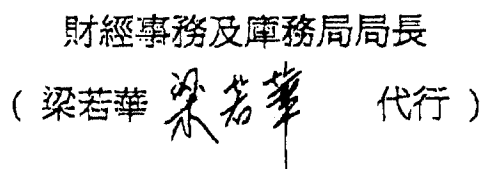 財經事務及庫務局局長
( 梁若華 梁若華 代行 )